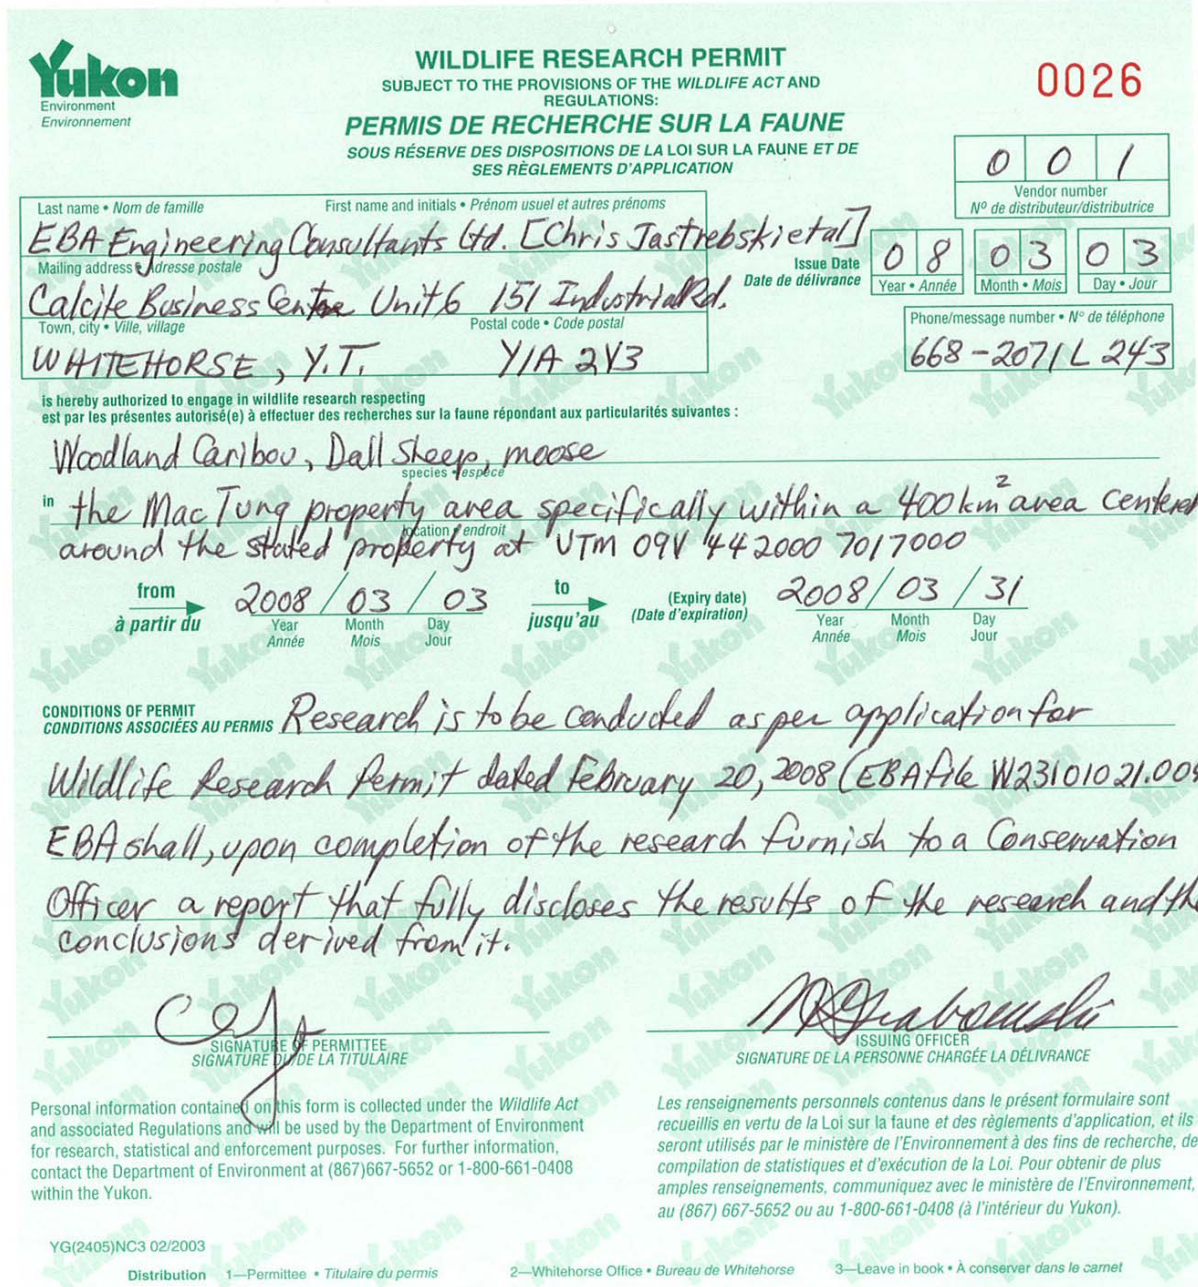 Yukon
Environment
Environnement
WILDLIFE RESEARCH PERMIT
SUBJECT TO THE PROVISIONS OF THE WILDLIFE ACT AND
REGULATIONS:
PERMIS DE RECHERCHE SUR LA FAUNE
SOUS RÉSERVE DES DISPOSITIONS DE LA LOI SUR LA FAUNE ET DE
SES RÈGLEMENTS D'APPLICATION
0026
0 0 1
Vendor number
Nº de distributeur/distributrice
Last name • Nom de famille First name and initials • Prénom usuel et autres prénoms
EBA Engineering Consultants Ltd. [Chris Jastrebski et al]
Mailing address • Adresse postale
Issue Date
Date de délivrance
08 03 03
Year • Année Month • Mois Day • Jour
Calcite Business Centre Unit 6 151 Industrial Rd.
Town, city • Ville, village Postal code • Code postal
WHITEHORSE, Y.T. Y1A 2V3
Phone/message number • Nº de téléphone
668-2071 L 243
is hereby authorized to engage in wildlife research respecting
est par les présentes autorisé(e) à effectuer des recherches sur la faune répondant aux particularités suivantes :
Woodland Caribou, Dall Sheep, moose
species • espèce
in the MacTung property area specifically within a 400 km2 area centered
location / endroit
around the stated property at UTM 09V 442000 7017000
from 2008/03/03 to (Expiry date) 2008/03/31
à partir du jusqu'au (Date d'expiration)
Year Month Day Year Month Day
Année Mois Jour Année Mois Jour
CONDITIONS OF PERMIT
CONDITIONS ASSOCIÉES AU PERMIS Research is to be conducted as per application for
Wildlife Research Permit dated February 20, 2008 (EBA file W23101021.004
EBA shall, upon completion of the research furnish to a Conservation
Officer a report that fully discloses the results of the research and the
conclusions derived from it.
SIGNATURE OF PERMITTEE
SIGNATURE DU/DE LA TITULAIRE
ISSUING OFFICER
SIGNATURE DE LA PERSONNE CHARGÉE LA DÉLIVRANCE
Personal information contained on this form is collected under the Wildlife Act
and associated Regulations and will be used by the Department of Environment
for research, statistical and enforcement purposes. For further information,
contact the Department of Environment at (867)667-5652 or 1-800-661-0408
within the Yukon.
Les renseignements personnels contenus dans le présent formulaire sont
recueillis en vertu de la Loi sur la faune et des règlements d'application, et ils
seront utilisés par le ministère de l'Environnement à des fins de recherche, de
compilation de statistiques et d'exécution de la Loi. Pour obtenir de plus
amples renseignements, communiquez avec le ministère de l'Environnement,
au (867) 667-5652 ou au 1-800-661-0408 (à l'intérieur du Yukon).
YG(2405)NC3 02/2003
Distribution 1—Permittee • Titulaire du permis 2—Whitehorse Office • Bureau de Whitehorse 3—Leave in book • À conserver dans le carnet